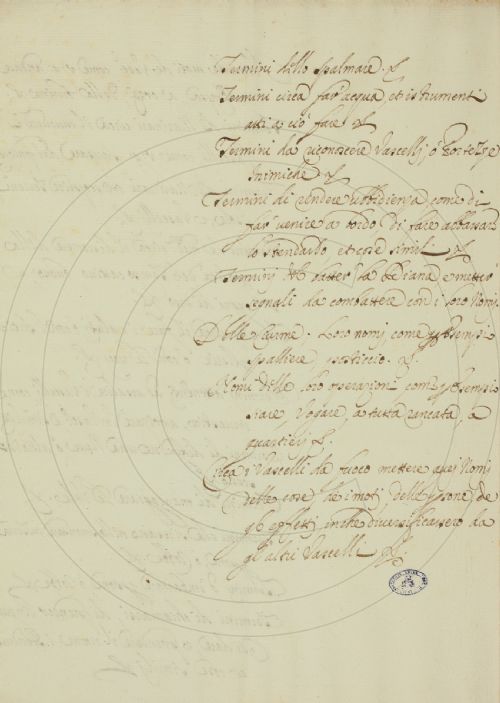 Termini dello spalmare.
Termini circa far' acqua et istrumenti
atti a ciò fare
Termini da riconoscere Vascelli, ò fortezze
inimiche.
Termini di rendere ubbidienza come di
far' venire a bordo di fare abbassar'
lo stendardo et cose simili
Termini di batter' la Diana e metter'
segnali da combattere con i loro Nomi.
Delle Ciurme. Loro nomi, come per esempio
spalliere
Nomi delle loro operazioni come per esempio
siare, Vogare, a tutta rancata, a
quartieri
Circa i Vascelli da fuoco mettere quei Nomi
delle cose de i moti, delle persone, de
gli effetti in che diversificassero da
gl'altri Vascelli